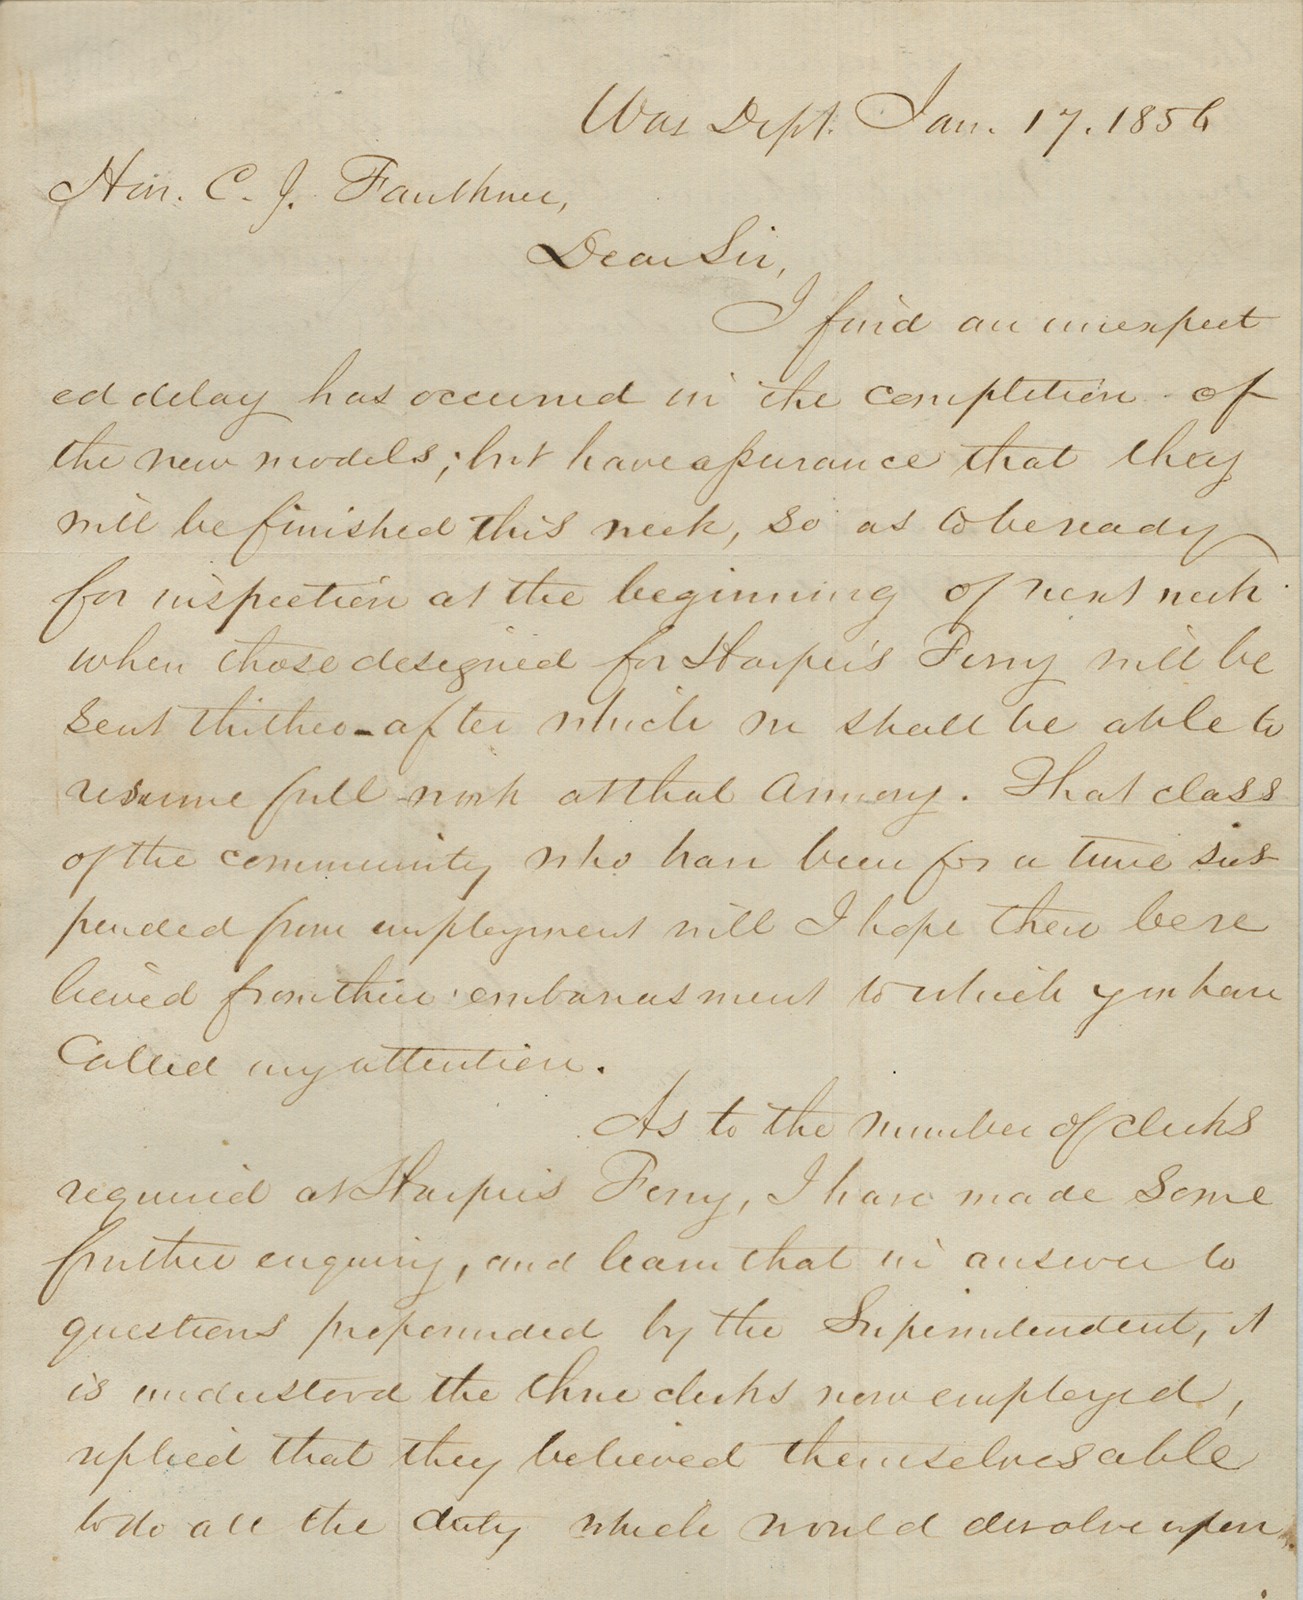 War Dept. Jan. 17. 1856
Hon. C. J. Faulkner,
Dear Sir,
I find an unexpect
ed delay has occurred in the completion of
the new models; but have assurance that they
will be finished this week, so as to be ready
for inspection at the beginning of next week
when those designed for Harper's Ferry will be
sent thither - after which we shall be able to
resume full work at that Armory. That class
of the community who have been for a time sus
pended from employment will I hope then be re
lieved from their embarrassment to which you have
called my attention.
As to the number of clerks
required at Harper's Ferry, I have made some
further enquiry, and learn that in answer to
questions propounded by the Superintendent, it
is understood the three clerks now employed,
replied that they believed themselves able
to do all the duty which would devolve upon